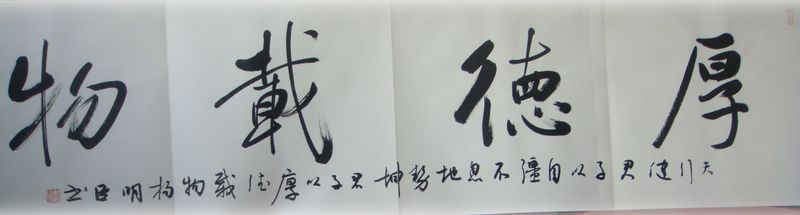 厚德載物
天行健君子以自彊不息地势坤君子以厚德载物杨明臣书